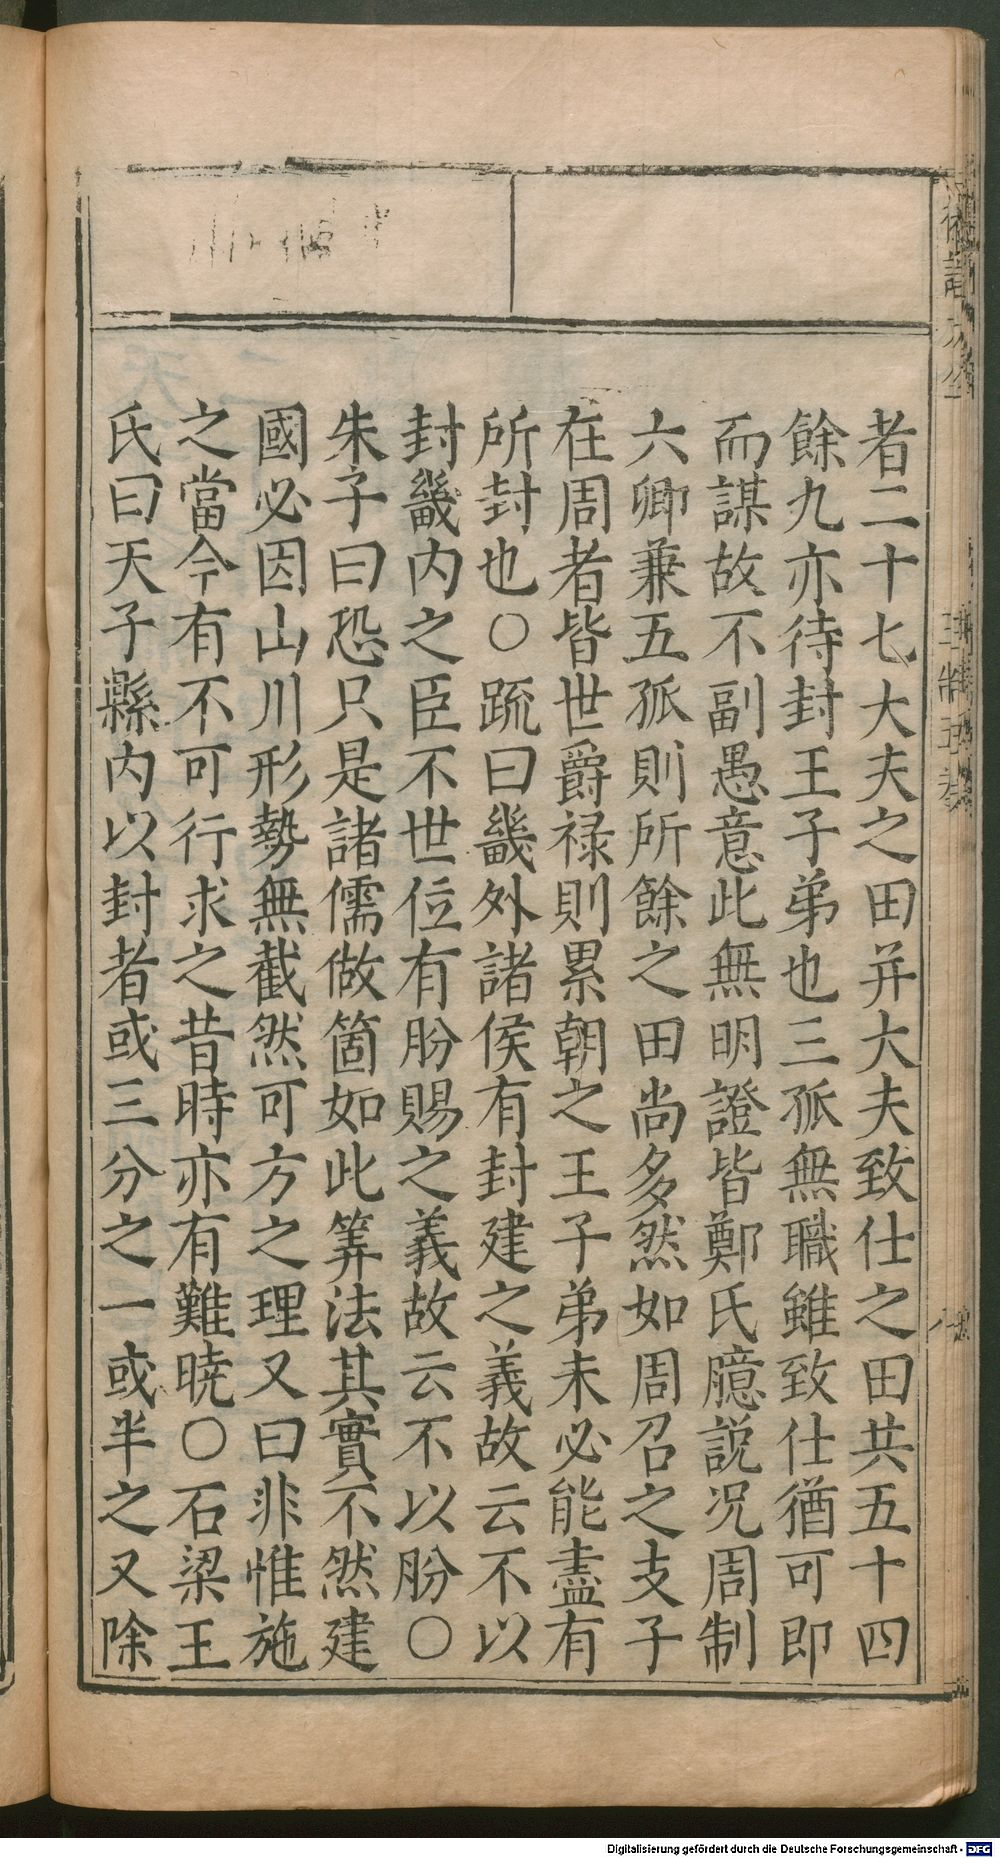 者二十七大夫之田并大夫致仕之田共五十四
餘九亦待封王子弟也三孤無職雖致仕猶可即
而謀故不副愚意此無明證皆鄭氏臆説况周制
六卿兼五孤則所餘之田尚多然如周召之支子
在周者皆世爵禄則累朝之王子弟未必能盡有
所封也○疏曰畿外諸侯有封建之義故云不以
封畿内之臣不世位有朌賜之義故云不以朌○
朱子曰恐只是諸儒做箇如此筭法其實不然建
國必因山川形勢無截然可方之理又曰非惟施
之當今有不可行求之昔時亦有難暁○石梁王
氏曰天子縣内以封者或三分之一或半之又除
Digitalisierung gefördert durch die Deutsche Forschungsgemeinschaft - DFG